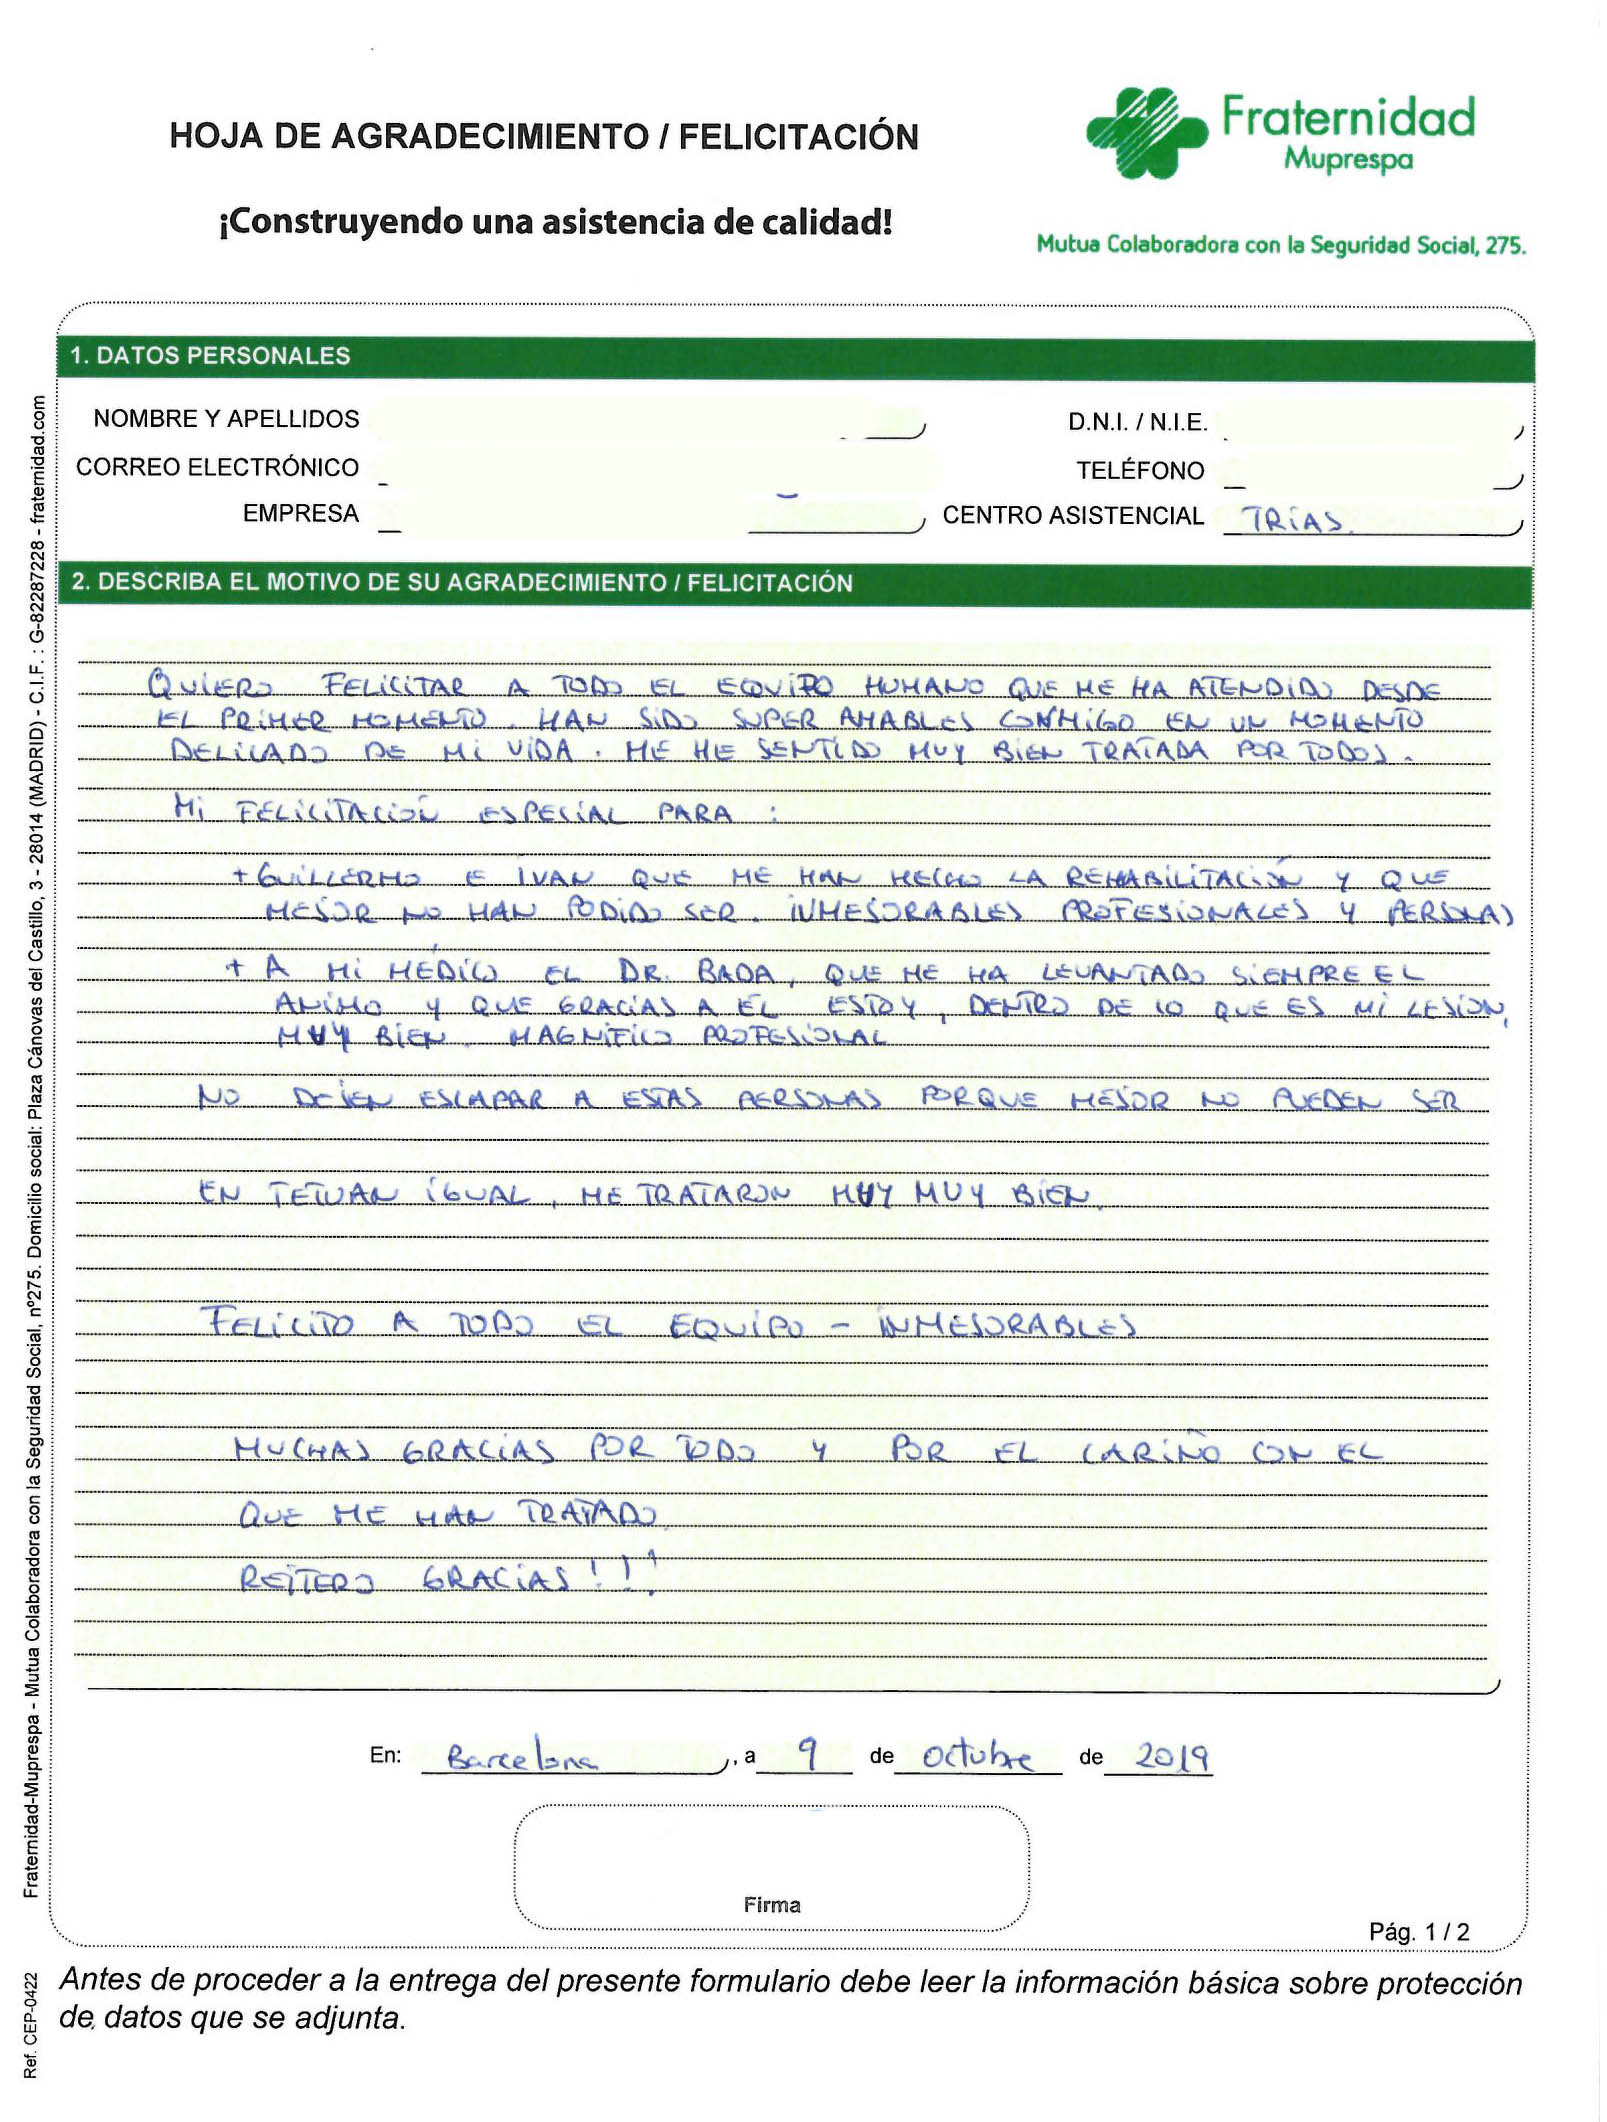 HOJA DE AGRADECIMIENTO / FELICITACIÓN
¡Construyendo una asistencia de calidad!
Fraternidad
Muprespa
Mutua Colaboradora con la Seguridad Social, 275.
1. DATOS PERSONALES
NOMBRE Y APELLIDOS
D.N.I. / N.I.E.
CORREO ELECTRÓNICO
TELÉFONO
EMPRESA
CENTRO ASISTENCIAL TRIAS.
2. DESCRIBA EL MOTIVO DE SU AGRADECIMIENTO / FELICITACIÓN
QUIERO FELICITAR A TODO EL EQUIPO HUMANO QUE ME HA ATENDIDO DESDE
EL PRIMER MOMENTO. HAN SIDO SUPER AMABLES CONMIGO EN UN MOMENTO
DELICADO DE MI VIDA. ME HE SENTIDO MUY BIEN TRATADA POR TODOS.
MI FELICITACIÓN ESPECIAL PARA :
+ GUILLERMO E IVAN QUE ME HAN HECHO LA REHABILITACIÓN Y QUE
MEJOR NO HAN PODIDO SER. INMEJORABLES PROFESIONALES Y PERSONAS
+ A MI MÉDICO EL DR. BADA, QUE ME HA LEVANTADO SIEMPRE EL
ANIMO Y QUE GRACIAS A ÉL ESTOY, DENTRO DE LO QUE ES MI LESION,
MUY BIEN. MAGNIFICO PROFESIONAL
NO DEJEN ESCAPAR A ESTAS PERSONAS PORQUE MEJOR NO PUEDEN SER
EN TETUAN IGUAL, ME TRATARON MUY MUY BIEN.
FELICITO A TODO EL EQUIPO - INMEJORABLES
MUCHAS GRACIAS POR TODO Y POR EL CARIÑO CON EL
QUE ME HAN TRATADO.
REITERO GRACIAS!!!
En: Barcelona, a 9 de octubre de 2019
Firma
Pág. 1 / 2
Antes de proceder a la entrega del presente formulario debe leer la información básica sobre protección
de datos que se adjunta.
Fraternidad-Muprespa - Mutua Colaboradora con la Seguridad Social, nº275. Domicilio social: Plaza Cánovas del Castillo, 3 - 28014 (MADRID) - C.I.F. : G-82287228 - fraternidad.com
Ref. CEP-0422